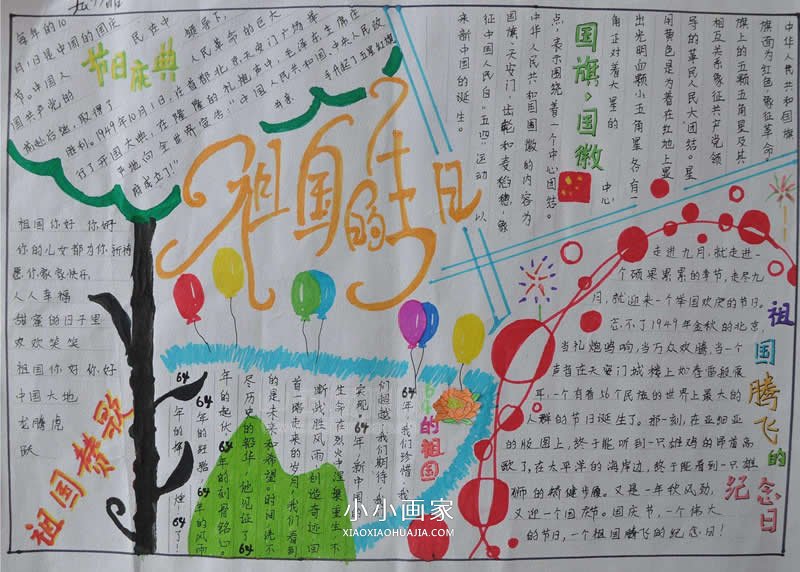 节日庆典
每年的10
月1日是中国的国庆
节。中国人
国共产党的
民在中
领导下,
人民革命的巨大
胜利。1949年10月1日,在首都北京天安门广场举
行了开国大典,在隆隆的礼炮声中,毛泽东主席庄
严地向全世界宣告:"中国人民共和国中央人民政
府成立了!"
并亲
手升起了五星红旗
祖国的生日
国旗、国徽
中华人民共和国国旗
旗面为红色,象征革命。
旗上的五颗五角星及其
相互关系象征共产党领
导的革民人民大团结。星
用黄色是为着在红地上显
出光明血颗小五角星各有一
角正对着大星的
中心
点,表示围绕着一个中心团结。
中华人民共和国国徽的内容为
国旗、天安门、齿轮和麦稻穗,象
征中国人民自"五四"运动以
来新中国的诞生。
祖国赞歌
祖国你好 你好
你的儿女都为你祈祷
愿你歌歌快乐
人人幸福
甜蜜的日子里
欢欢笑笑
祖国你好你好
中国大地
龙腾虎
跃
64岁的祖国
64年,我们珍惜,我
们超越,我们期待,我
实现。64年,新中国
生命在烈火中涅槃重生不
断战胜风雨创造奇迹回
首一路走来的岁月,我们看到
的是未来和希望。时间洗不
尽历史的铅华,他见证了64
年的起伏,64年的刻骨铭心。
64年的征路,64年的风雨
64年的辉煌!64年了!
祖国腾飞的纪念日
走进九月,就走进一
个硕果累累的季节,走尽九
月,就迎来一个举国欢庆的节日。
忘不了1949年金秋的北京,
当礼炮鸣响,当万众欢腾,当一个
声音在天安门城楼上如春雷般震
耳,一个有着56个民族的世界上最大的
人群的节日诞生了。那一刻,在亚细亚
的版图上,终于能听到一只雄鸡的昂首高
歌了,在太平洋的海岸边,终于能看到一只雄
狮的矫健步履。又是一年秋风劲,
又迎一个国庆节。国庆节,一个伟大
的节日,一个祖国腾飞的纪念日!
小小画家
XIAOXIAOHUAJIA.COM